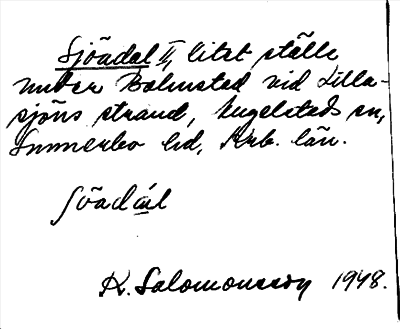 Sjöadal II, litet ställe
under Bolmstad vid Lilla-
sjöns strand, Angelstads sn,
Sunnerbo hd, Krb. län.
söadál
K. Salomonsson 1948.